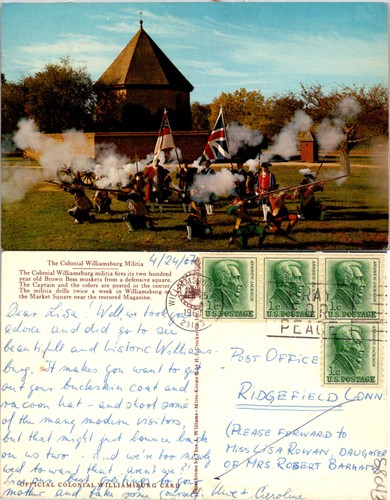 The Colonial Williamsburg Militia
The Colonial Williamsburg militia fires its two hundred
year old Brown Bess muskets from a defensive square.
The Captain and the colors are posted in the center.
The militia drills twice a week in Williamsburg on
the Market Square near the restored Magazine.
4/24/67
Dear Lisa! Well, we took your
advice and did go to see
beautiful and historic Williams-
burg. It makes you want to get
out your buckskin coat and
racoon hat - and shoot some
of the many modern visitors,
but that might just bounce back
on us two - and we're too much
well toward that, aren't we?!
mother, and take some yourself. Uwe + Caroline
OFFICIAL COLONIAL WILLIAMSBURG CARD
1c U.S. POSTAGE
1c U.S. POSTAGE
1c U.S. POSTAGE
PRAY
PEACE
1c
U.S. POSTAGE
POST OFFICE
RIDGEFIELD CONN.
(PLEASE FORWARD TO
MISS LISA ROWAN, DAUGHTER
OF MRS ROBERT